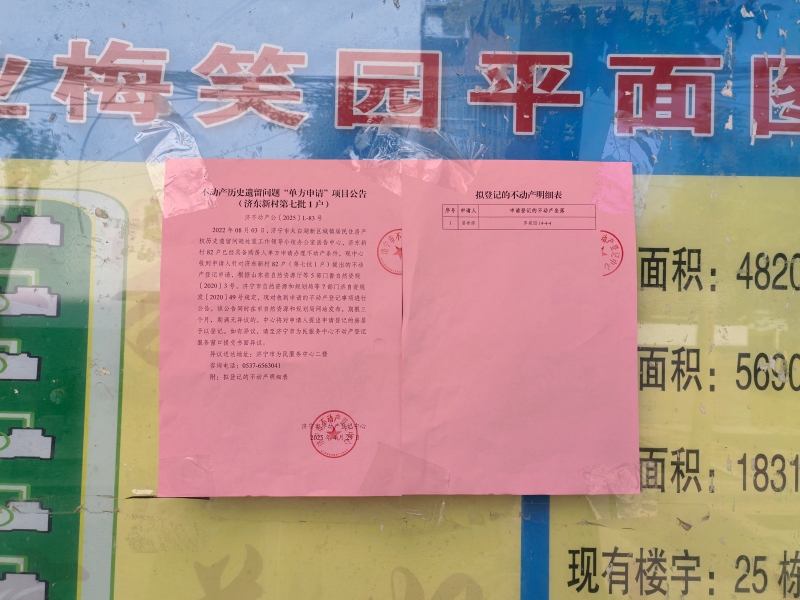 梅笑园平面
不动产历史遗留问题“单方申请”项目公告
（济东新村第七批1户）
济不动产公［2025］L-83号
2022年08月03日，济宁市太白湖新区城镇居民住房产
权历史遗留问题处置工作领导小组办公室函告中心，济东新
村82户已经具备购房人单方申请办理不动产条件。现中心
收到申请人针对济东新村82户（第七批1户）提出的不动
产登记申请，根据山东省自然资源厅等5部门鲁自然资规
［2020］3号、济宁市自然资源和规划局等7部门济自资规
发［2020］49号规定，现对收到申请的不动产登记事项进行
公告，该公告同时在市自然资源和规划局网站发布，期限三
个月，期满无异议的，中心将对申请人提出申请登记的房屋
予以登记。如有异议，请至济宁市为民服务中心不动产登记
服务窗口提交书面异议。
异议送达地址：济宁市为民服务中心二楼
咨询电话：0537-6563041
附：拟登记的不动产明细表
济宁市不动产登记中心
2025年 月29日
拟登记的不动产明细表
序号 申请人 申请登记的不动产坐落
1
面积：4820
面积：5690
面积：1831
现有楼宇：25栋